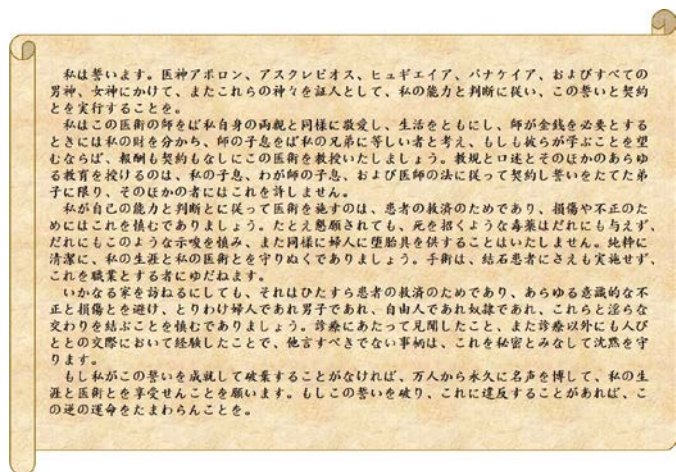 私は誓います。医神アポロン、アスクレピオス、ヒュギエイア、パナケイア、およびすべての
男神、女神にかけて、またこれらの神々を証人として、私の能力と判断に従い、この誓いと契約
とを実行することを。
私はこの医術の師をば私自身の両親と同様に敬愛し、生活をともにし、師が金銭を必要とする
ときには私の財を分かち、師の子息をば私の兄弟に等しい者と考え、もしも彼らが学ぶことを望
むならば、報酬も契約もなしにこの医術を教授いたしましょう。教規と口述とそのほかのあらゆ
る教育を授けるのは、私の子息、わが師の子息、および医師の法に従って契約し誓いをたてた弟
子に限り、そのほかの者にはこれを許しません。
私が自己の能力と判断とに従って医術を施すのは、患者の救済のためであり、損傷や不正のた
めにはこれを慎むでありましょう。たとえ懇願されても、死を招くような毒薬はだれにも与えず、
だれにもこのような示唆を慎み、また同様に婦人に堕胎具を供することはいたしません。純粋に
清潔に、私の生涯と私の医術とを守りぬくでありましょう。手術は、結石患者にさえも実施せず、
これを職業とする者にゆだねます。
いかなる家を訪ねるにしても、それはひたすら患者の救済のためであり、あらゆる意識的な不
正と損傷とを避け、とりわけ婦人であれ男子であれ、自由人であれ奴隷であれ、これらと淫らな
交わりを結ぶことを慎むでありましょう。診療にあたって見聞したこと、また診療以外にも人び
ととの交際において経験したことで、他言すべきでない事柄は、これを秘密とみなして沈黙を守
ります。
もし私がこの誓いを成就して破棄することがなければ、万人から永久に名声を博して、私の生
涯と医術とを享受せんことを願います。もしこの誓いを破り、これに違反することがあれば、こ
の逆の運命をたまわらんことを。